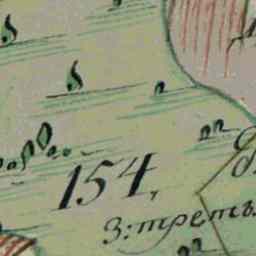 154,
3: третъ